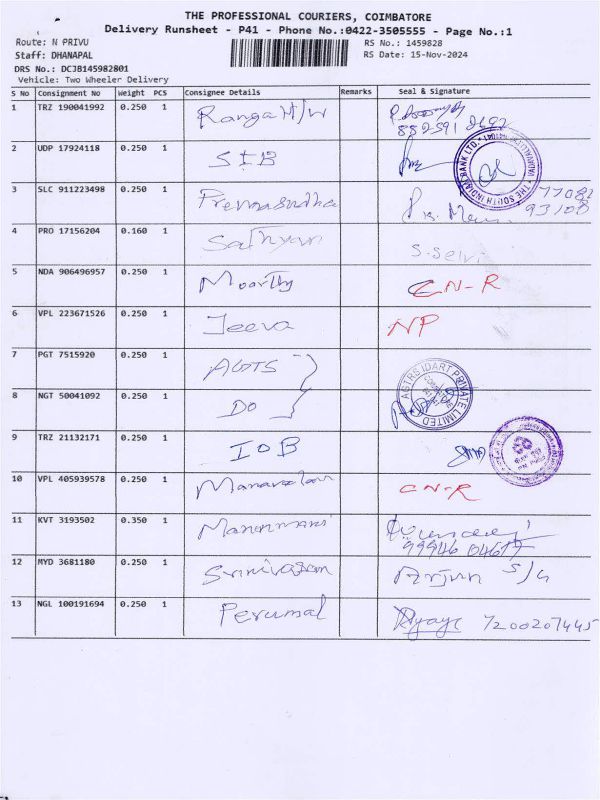 THE PROFESSIONAL COURIERS, COIMBATORE
Delivery Runsheet - P41 - Phone No.:0422-3505555 - Page No.:1
Route: N PRIVU RS No.: 1459828
Staff: DHANAPAL RS Date: 15-Nov-2024
DRS No.: DCJB145982801
Vehicle: Two Wheeler Delivery
S No Consignment No Weight PCS Consignee Details Remarks Seal & Signature
1 TRZ 190041992 0.250 1 Ranga H/W
2 UDP 17924118 0.250 1 SIB THE SOUTH INDIAN BANK LTD.
3 SLC 911223498 0.250 1 Premasudha
4 PRO 17156204 0.160 1 Sathyan S. Selvi
5 NDA 906496957 0.250 1 Moorthy CN-R
6 VPL 223671526 0.250 1 Jeeva NP
7 PGT 7515920 0.250 1 AGTS
8 NGT 50041092 0.250 1 DO AGTRS IDART PRIVATE LIMITED
9 TRZ 21132171 0.250 1 IOB
10 VPL 405939578 0.250 1 CN-R
11 KVT 3193502 0.350 1 Manonmani 99946 04617
12 MYD 3681180 0.250 1 Srinivasan Arjun S/G
13 NGL 100191694 0.250 1 Perumal 7200207445